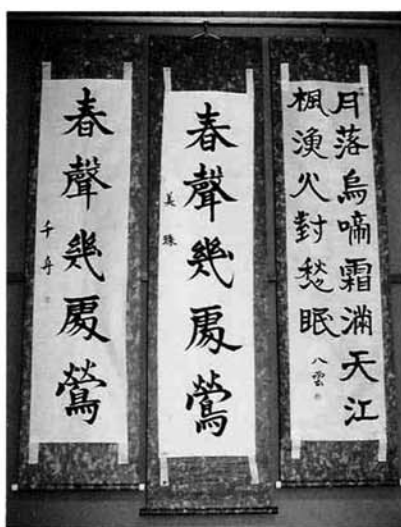 月落烏啼霜滿天江
楓漁火對愁眠
八雲
春聲幾處鶯
美珠
春聲幾處鶯
千舟